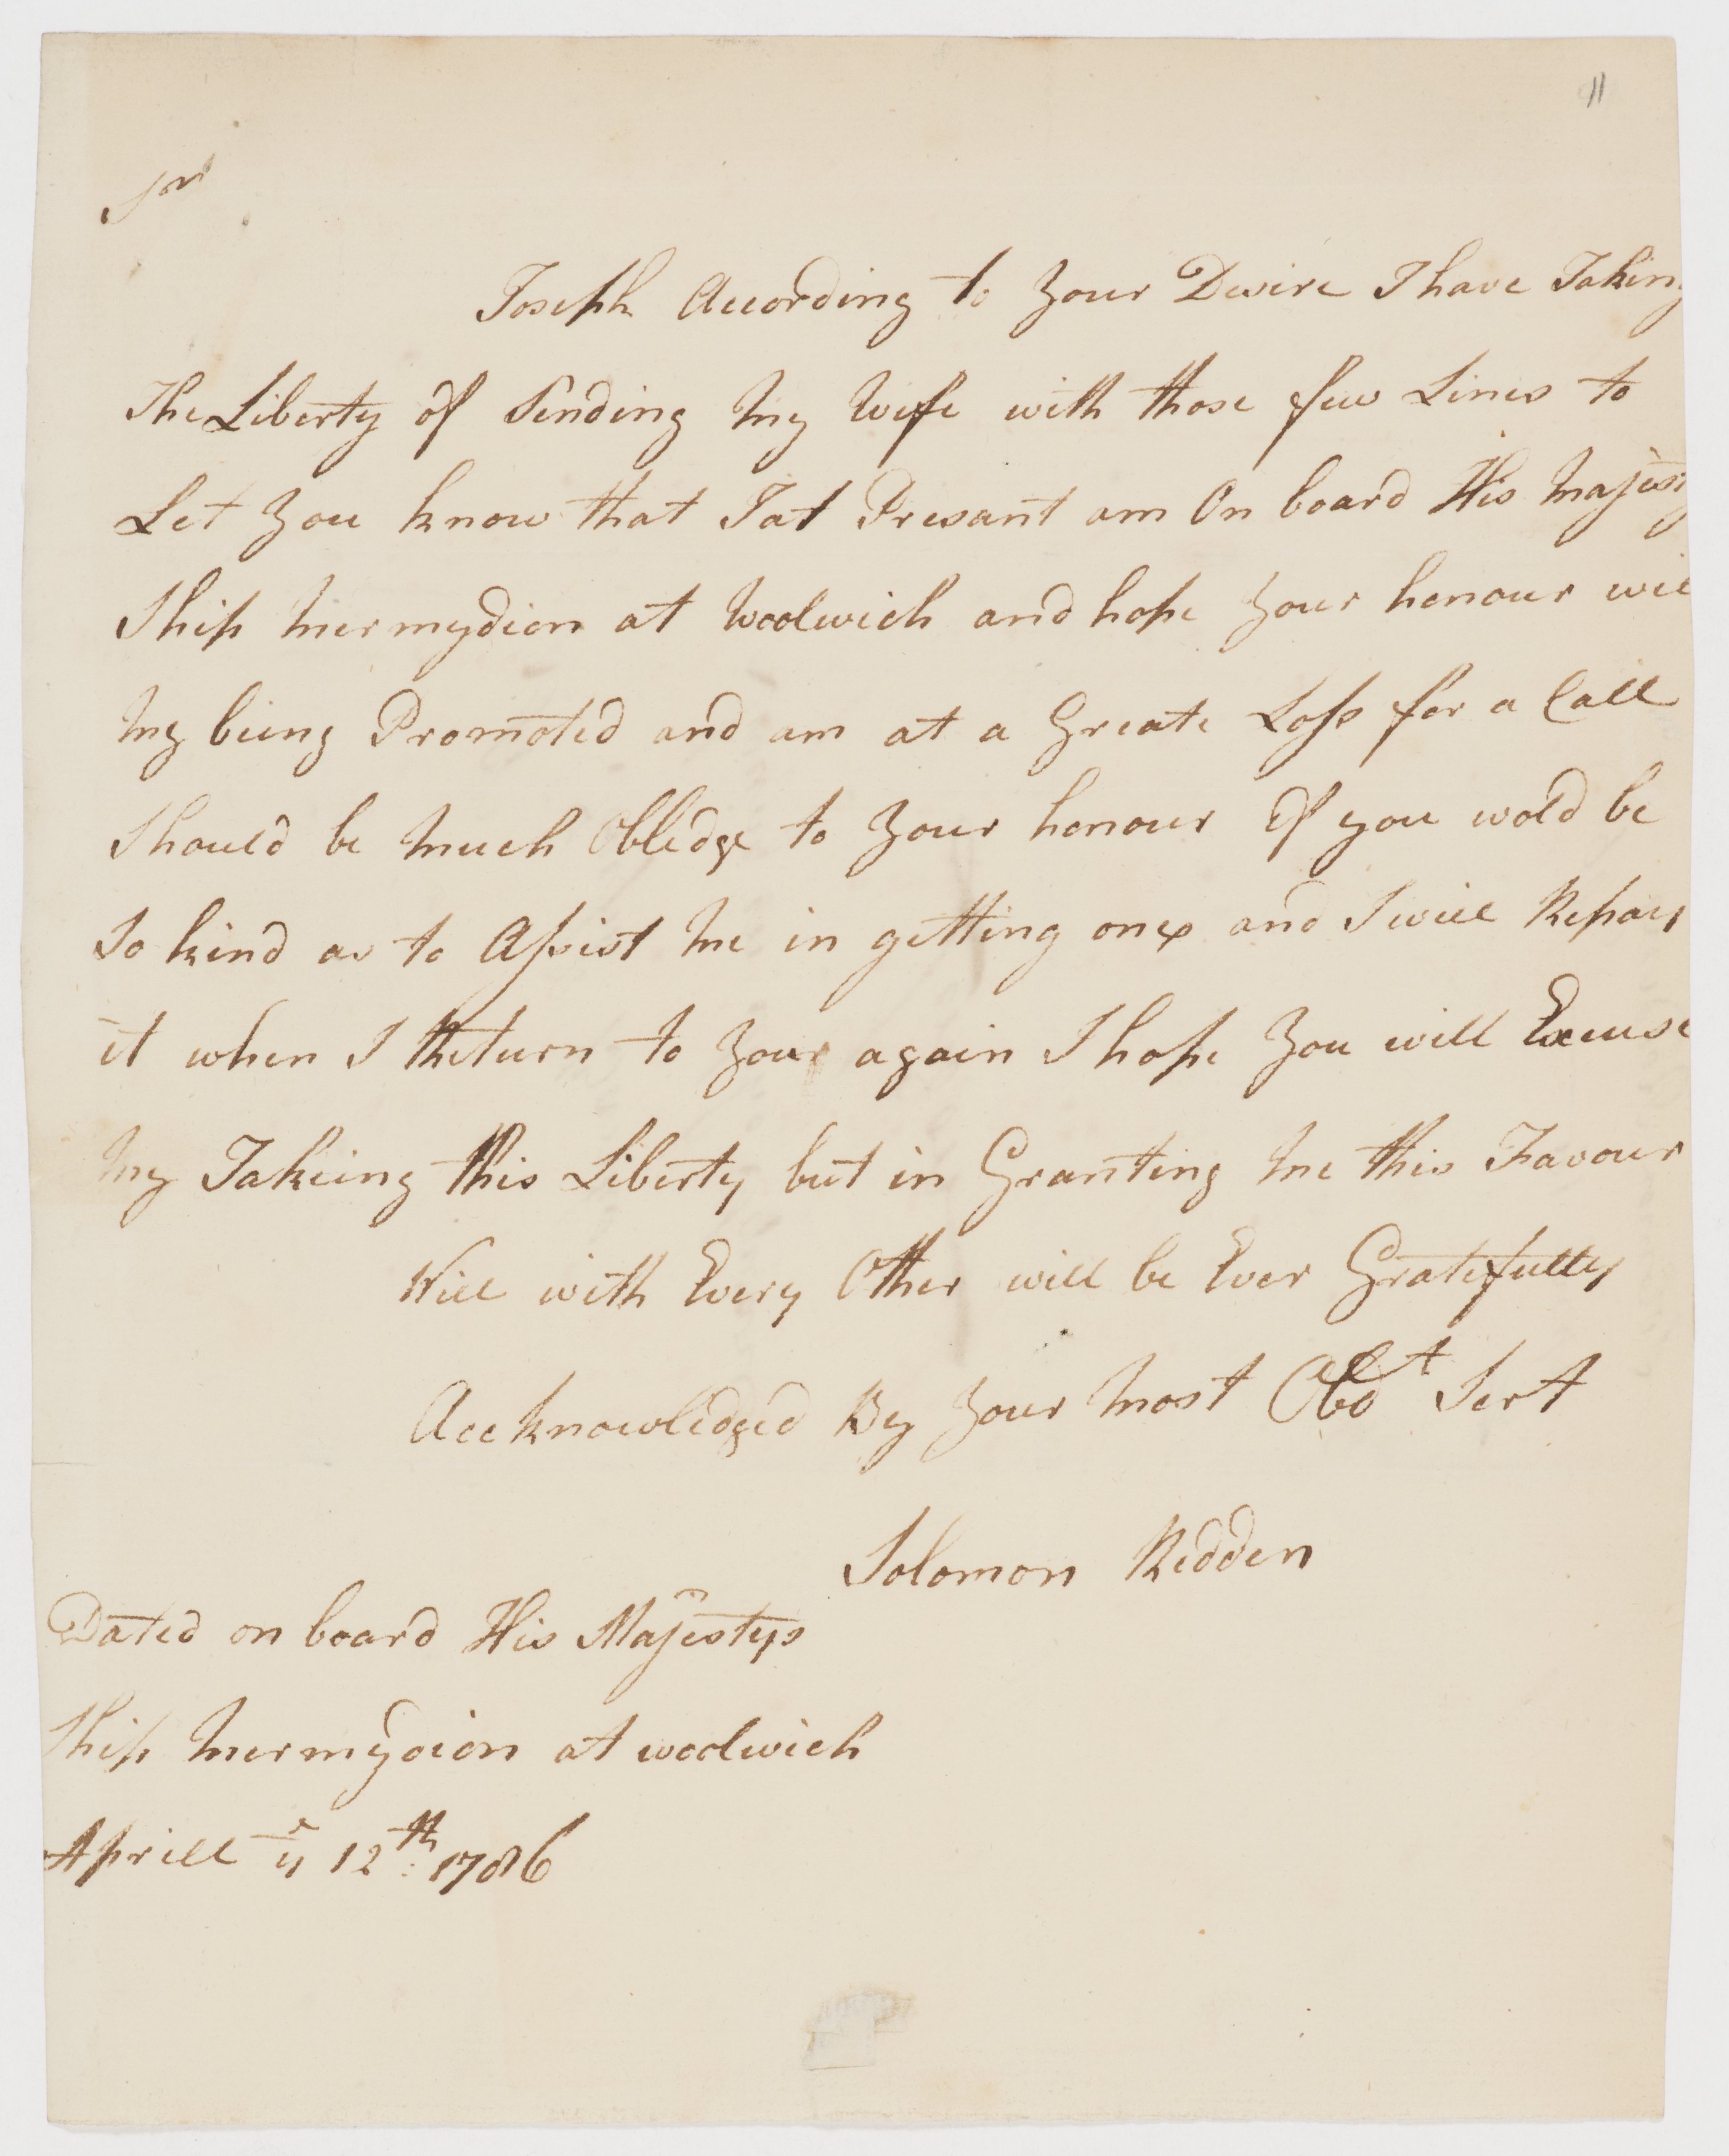 11
Sr
Joseph According to your Desire I have Taking
The Liberty of Sending My Wife with those few Lines to
Let you know that I at Presant am On board His Majesty
Ship Mermydion at Woolwich and hope your honour will
My being Promoted and am at a Greate Loss for a Call
Should be Much Obledge to your honour If you wold be
So kind as to Assist Me in getting one and I will Repay
it when I Return to your again I hope you will Excuse
My Takeing this Liberty but in Granting Me this Favour
Will with Every Other will be Ever Gratefully
Accknowledged By your Most Obdt Sert
Solomon Redden
Dated on board His Majestys
Ship Mermydion at woolwich
Aprill ye 12th: 1786